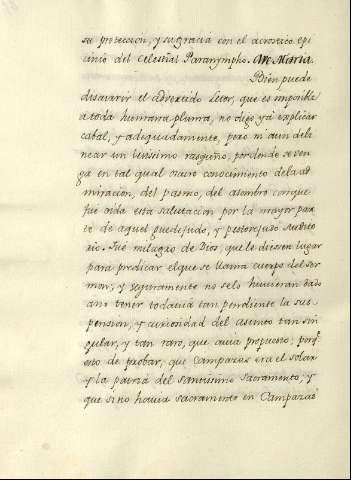 su proteccion, y su gracia con el acrostico epi
cinio del celestial Paranympho. Ave Maria.
Bien puede
discurrir el advertido Letor, que es imposible
a toda humana pluma, no digo yà explicar
cabal, y adequadamente, pero ni aun deli
near un levissimo rasguño, por donde se ven
ga en tal qual osuro conocimiento de la ad
miracion, del pasmo, del asombro conque
fue oida esta salutacion por la mayor par
te de aquel guedejudo, y pestorejudo Audito
rio. Fue milagro de Dios, que le dexassen lugar
para predicar el que se llama cuerpo del Ser
mon, y seguramente no se lo huvieran dado
a no tener todavia tan pendiente la sus
pension, y curiosidad del asunto tan sin
gular, y tan raro, que avia propuesto; porq.
esto de probar, que Campazas era el solar
y la patria del Santissimo Sacramento, y
que si no havia sacramento en Campazas